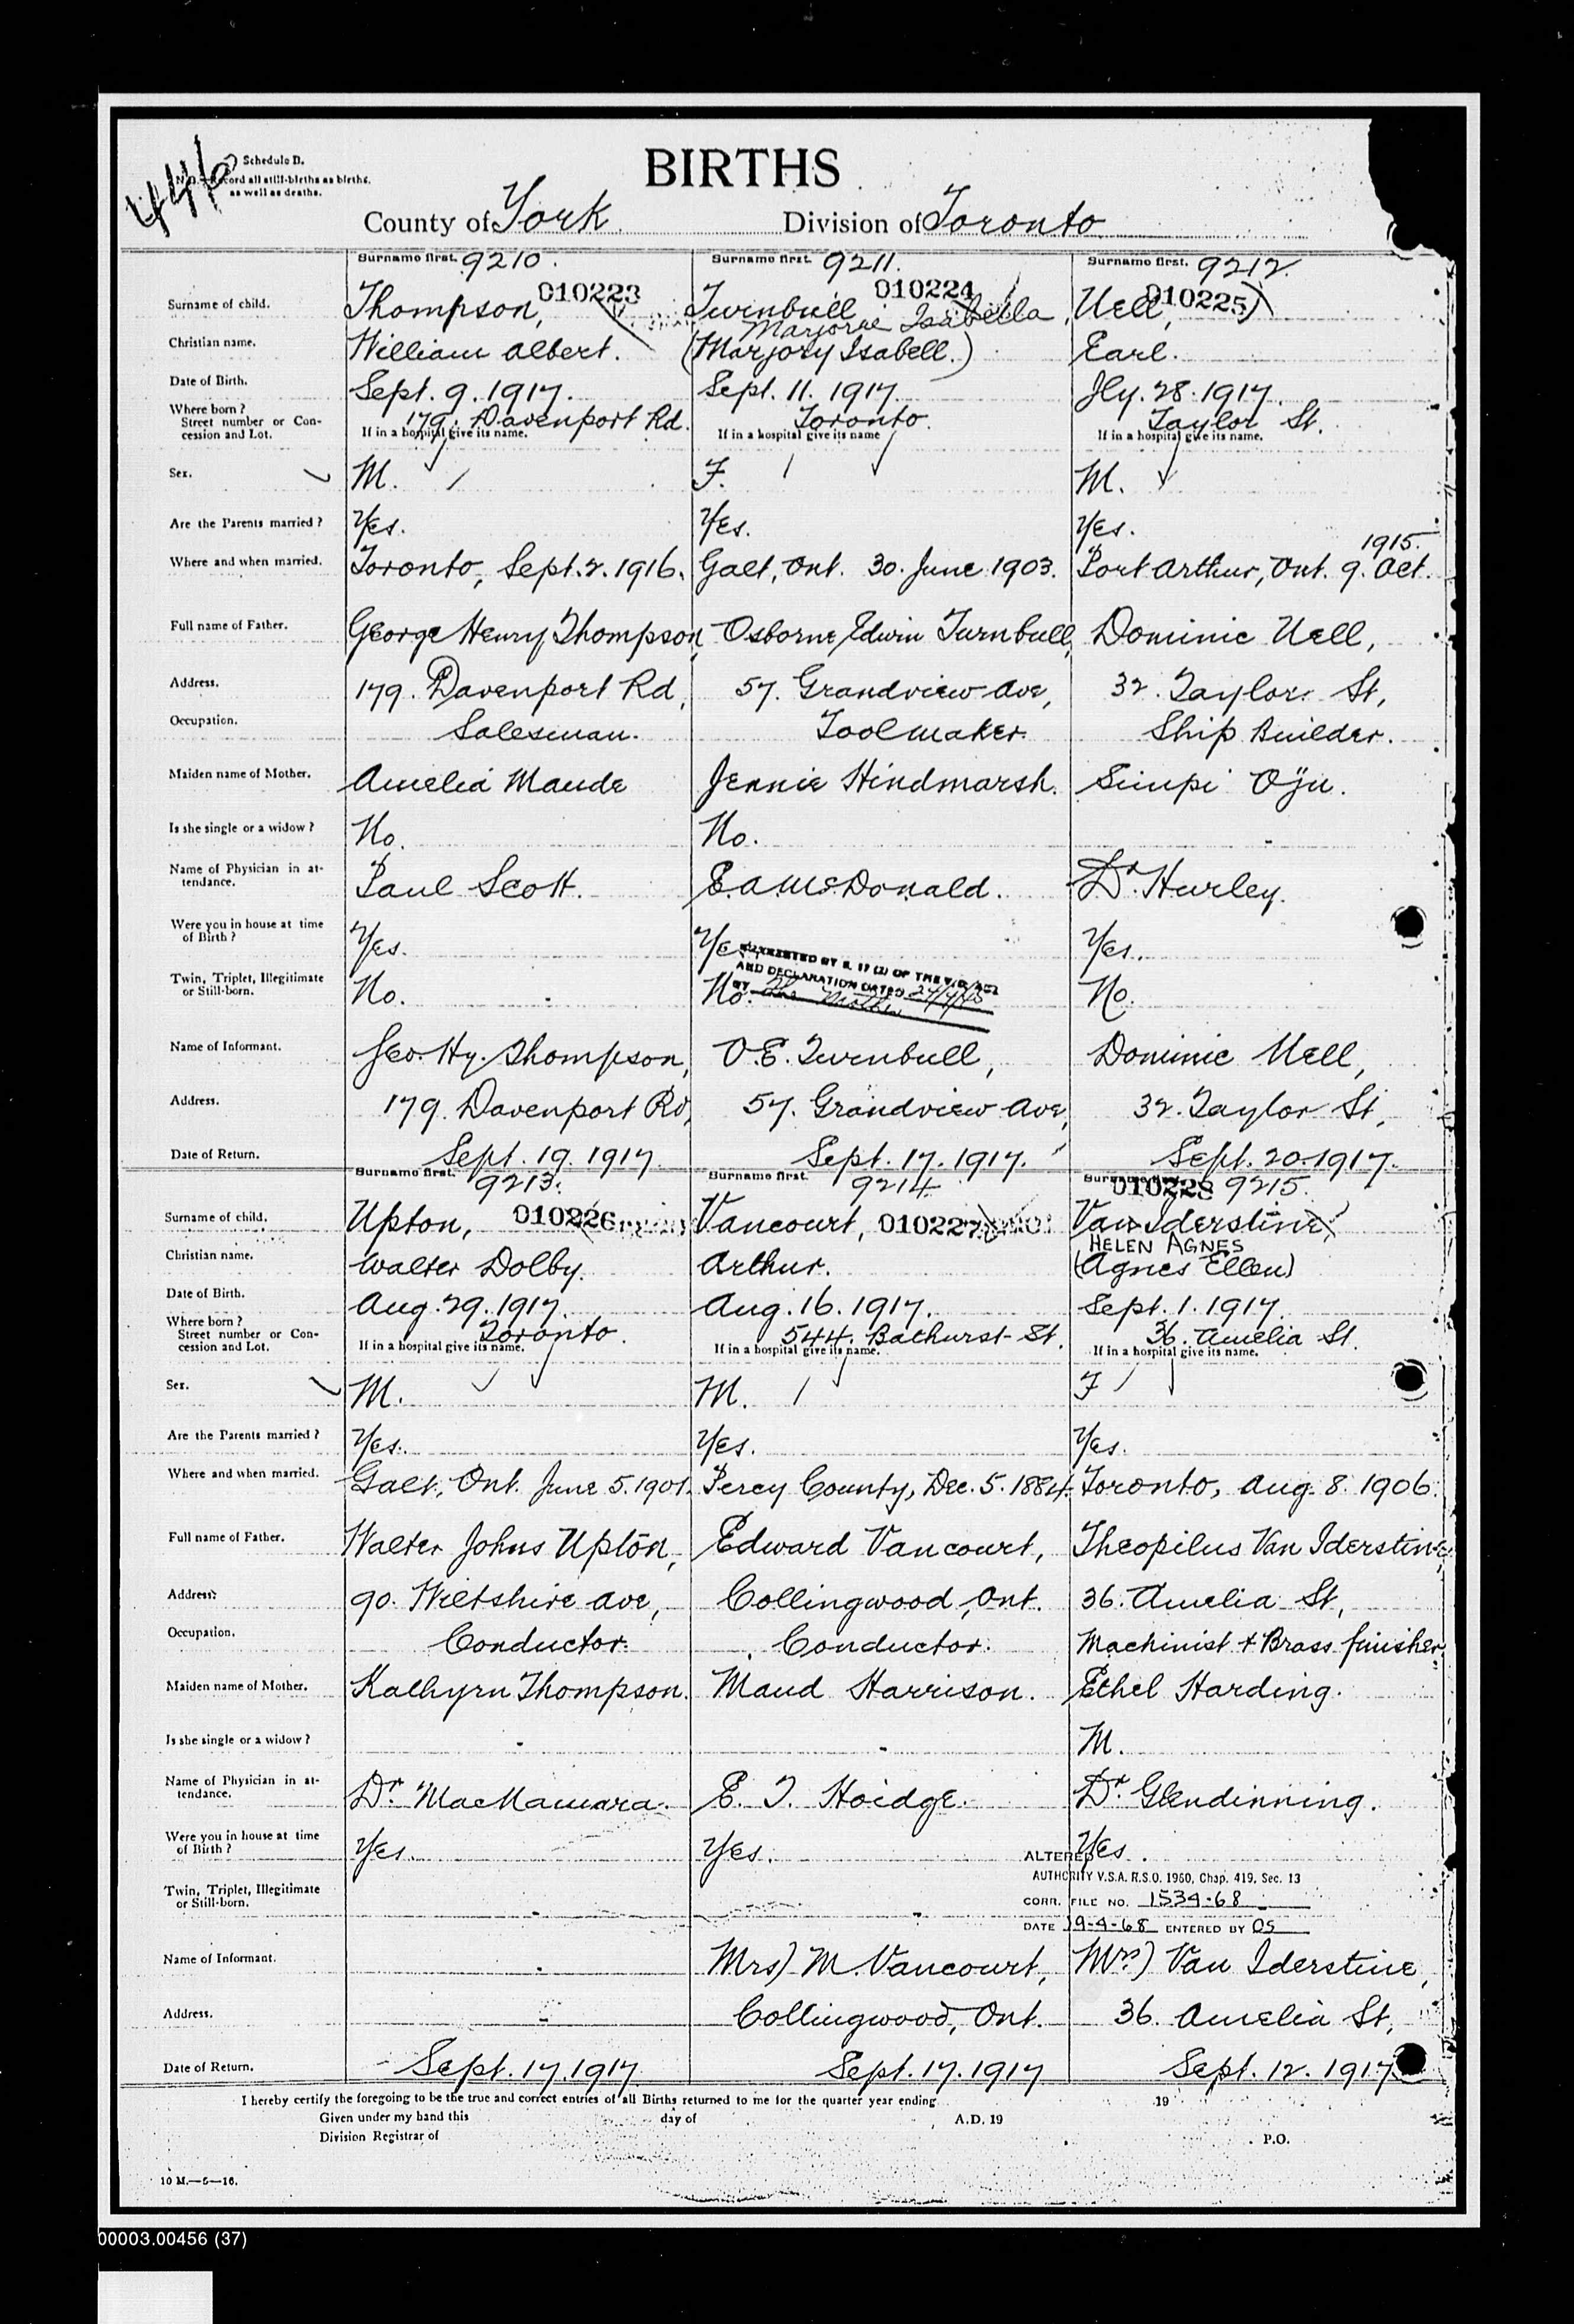 446
Schedule D.
N.B.—Record all still-births as births,
as well as deaths.
BIRTHS
County of York Division of Toronto
Surname first. 9210. Surname first. 9211. Surname first. 9212.
010223 010224 010225
Surname of child. Thompson, Turnbull Uell,
Marjorie Isabella
Christian name. William Albert. (Marjory Isabell.) Earl.
Date of Birth. Sept. 9. 1917. Sept. 11. 1917. Jly. 28. 1917.
Where born? 179. Davenport Rd. Toronto. Taylor St.
Street number or Con-
cession and Lot. If in a hospital give its name. If in a hospital give its name If in a hospital give its name.
Sex. M. F. M.
Are the Parents married? Yes. Yes. Yes.
1915.
Where and when married. Toronto, Sept. 2. 1916. Galt, Ont. 30. June 1903. Port Arthur, Ont. 9. Oct.
Full name of Father. George Henry Thompson, Osborne Edwin Turnbull, Dominic Uell,
Address. 179. Davenport Rd, 57. Grandview Ave, 32. Taylor St,
Occupation. Salesman. Toolmaker. Ship Builder.
Maiden name of Mother. Amelia Maude Jennie Hindmarsh. Simpi Oju.
Is she single or a widow? No. No. -
Name of Physician in at-
tendance. Paul Scott. E. A. McDonald. Dr. Hurley.
Were you in house at time
of Birth? Yes. Yes Yes.
CORRECTED BY S. 17 (2) OF THE V.S. ACT
AND DECLARATION DATED
BY The Mother
Twin, Triplet, Illegitimate
or Still-born. No. No. No.
Name of Informant. Geo. Hy. Thompson, O. E. Turnbull, Dominic Uell,
Address. 179. Davenport Rd, 57. Grandview Ave, 32. Taylor St,
Date of Return. Sept. 19. 1917. Sept. 17. 1917. Sept. 20. 1917.
Surname first. 9213. Surname first. 9214. Surname first. 9215.
010226 010227 010228
Surname of child. Upton, Vancourt, Van Iderstine,
HELEN AGNES
Christian name. Walter Dolby. Arthur. (Agnes Ellen)
Date of Birth. Aug. 29. 1917. Aug. 16. 1917. Sept. 1. 1917.
Where born? Toronto. 544. Bathurst St. 36. Amelia St.
Street number or Con-
cession and Lot. If in a hospital give its name. If in a hospital give its name. If in a hospital give its name.
Sex. M. M. F
Are the Parents married? Yes. Yes. Yes.
Where and when married. Galt, Ont. June 5. 1901. Percy County, Dec. 5. 1884. Toronto, Aug. 8. 1906.
Full name of Father. Walter Johns Upton, Edward Vancourt, Theopilus Van Iderstine,
Address. 90. Wiltshire Ave, Collingwood, Ont. 36. Amelia St,
Occupation. Conductor. Conductor. Machinist + Brass finisher,
Maiden name of Mother. Kathyrn Thompson. Maud Harrison. Ethel Harding.
Is she single or a widow? - - M.
Name of Physician in at-
tendance. Dr. MacNamara. E. T. Hoidge. Dr. Glendinning.
Were you in house at time
of Birth? Yes. Yes. Yes.
ALTERED
AUTHORITY V.S.A. R.S.O. 1960, Chap. 419, Sec. 13
Twin, Triplet, Illegitimate
or Still-born. - -
CORR. FILE NO. 1534-68
DATE 19-4-68 ENTERED BY OS
Name of Informant. - Mrs) M. Vancourt, Mrs) Van Iderstine,
Address. - Collingwood, Ont. 36. Amelia St,
Date of Return. Sept. 17. 1917 Sept. 17. 1917 Sept. 12. 1917
I hereby certify the foregoing to be the true and correct entries of all Births returned to me for the quarter year ending 19
Given under my hand this day of A.D. 19
Division Registrar of P.O.
10 M.—5—16.
00003.00456 (37)